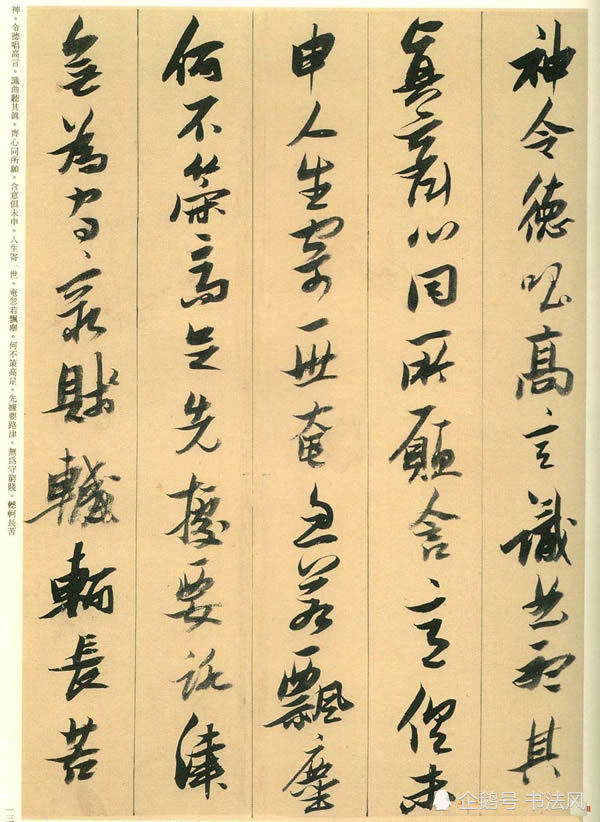 神令德唱高言識曲聽其
真齊心同所願含意俱未
申人生寄一世奄忽若飄塵
何不策高足先據要路津
無為守窮賤轗軻長苦
神。令德唱高言。識曲聽其真。齊心同所願。含意俱未申。人生寄一世。奄忽若飄塵。何不策高足。先據要路津。無爲守窮賤。轗軻長苦
一三
企鹅号 书法风